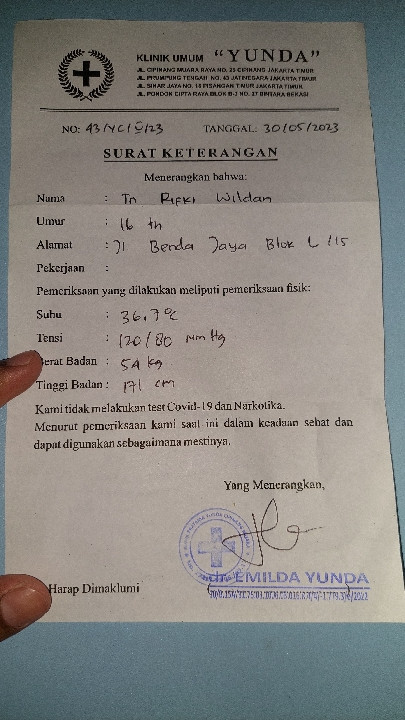 KLINIK UMUM "YUNDA"
JL. CIPINANG MUARA RAYA NO. 25 CIPINANG JAKARTA TIMUR
JL. PRUMPUNG TENGAH NO. 43 JATINEGARA JAKARTA TIMUR
JL. SINAR JAYA NO. 18 PISANGAN TIMUR JAKARTA TIMUR
JL. PONDON CIPTA RAYA BLOK B-3 NO. 27 BINTARA BEKASI
NO: 43/YC/V/23 TANGGAL: 30/05/2023
SURAT KETERANGAN
Menerangkan bahwa:
Nama : Tn Rifki Wildan
Umur : 16 th
Alamat : Jl Benda Jaya Blok L /15
Pekerjaan :
Pemeriksaan yang dilakukan meliputi pemeriksaan fisik:
Suhu : 36,7°C
Tensi : 120/80 mmHg
Berat Badan : 54 kg
Tinggi Badan : 171 cm
Kami tidak melakukan test Covid-19 dan Narkotika.
Menurut pemeriksaan kami saat ini dalam keadaan sehat dan
dapat digunakan sebagaimana mestinya.
Yang Menerangkan,
Harap Dimaklumi
dr. EMILDA YUNDA